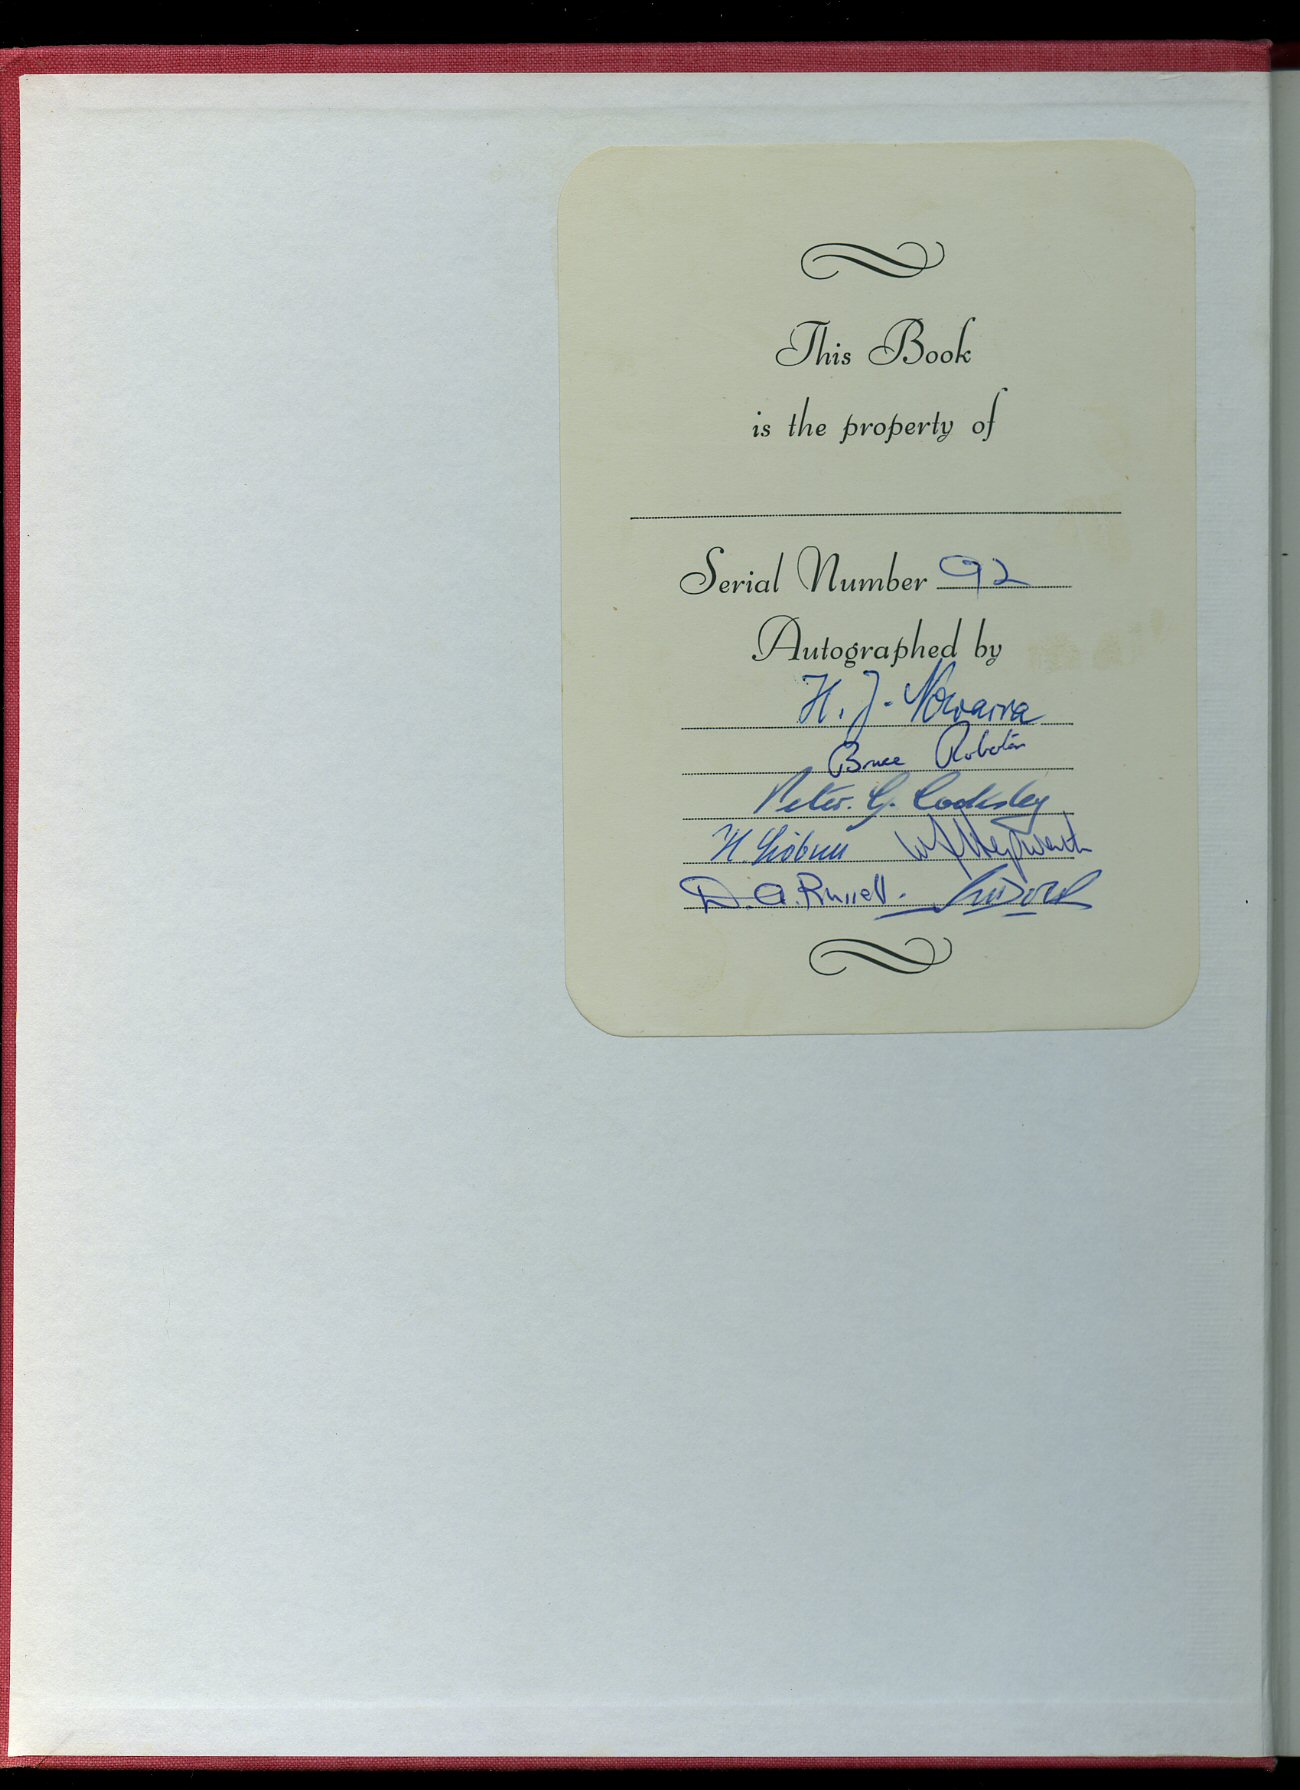 This Book
is the property of
Serial Number 92
Autographed by
H. J. Nowarra
Bruce Robertson
Peter. G. Cooksley
H. W. J. Hepworth
D. A. Russell.